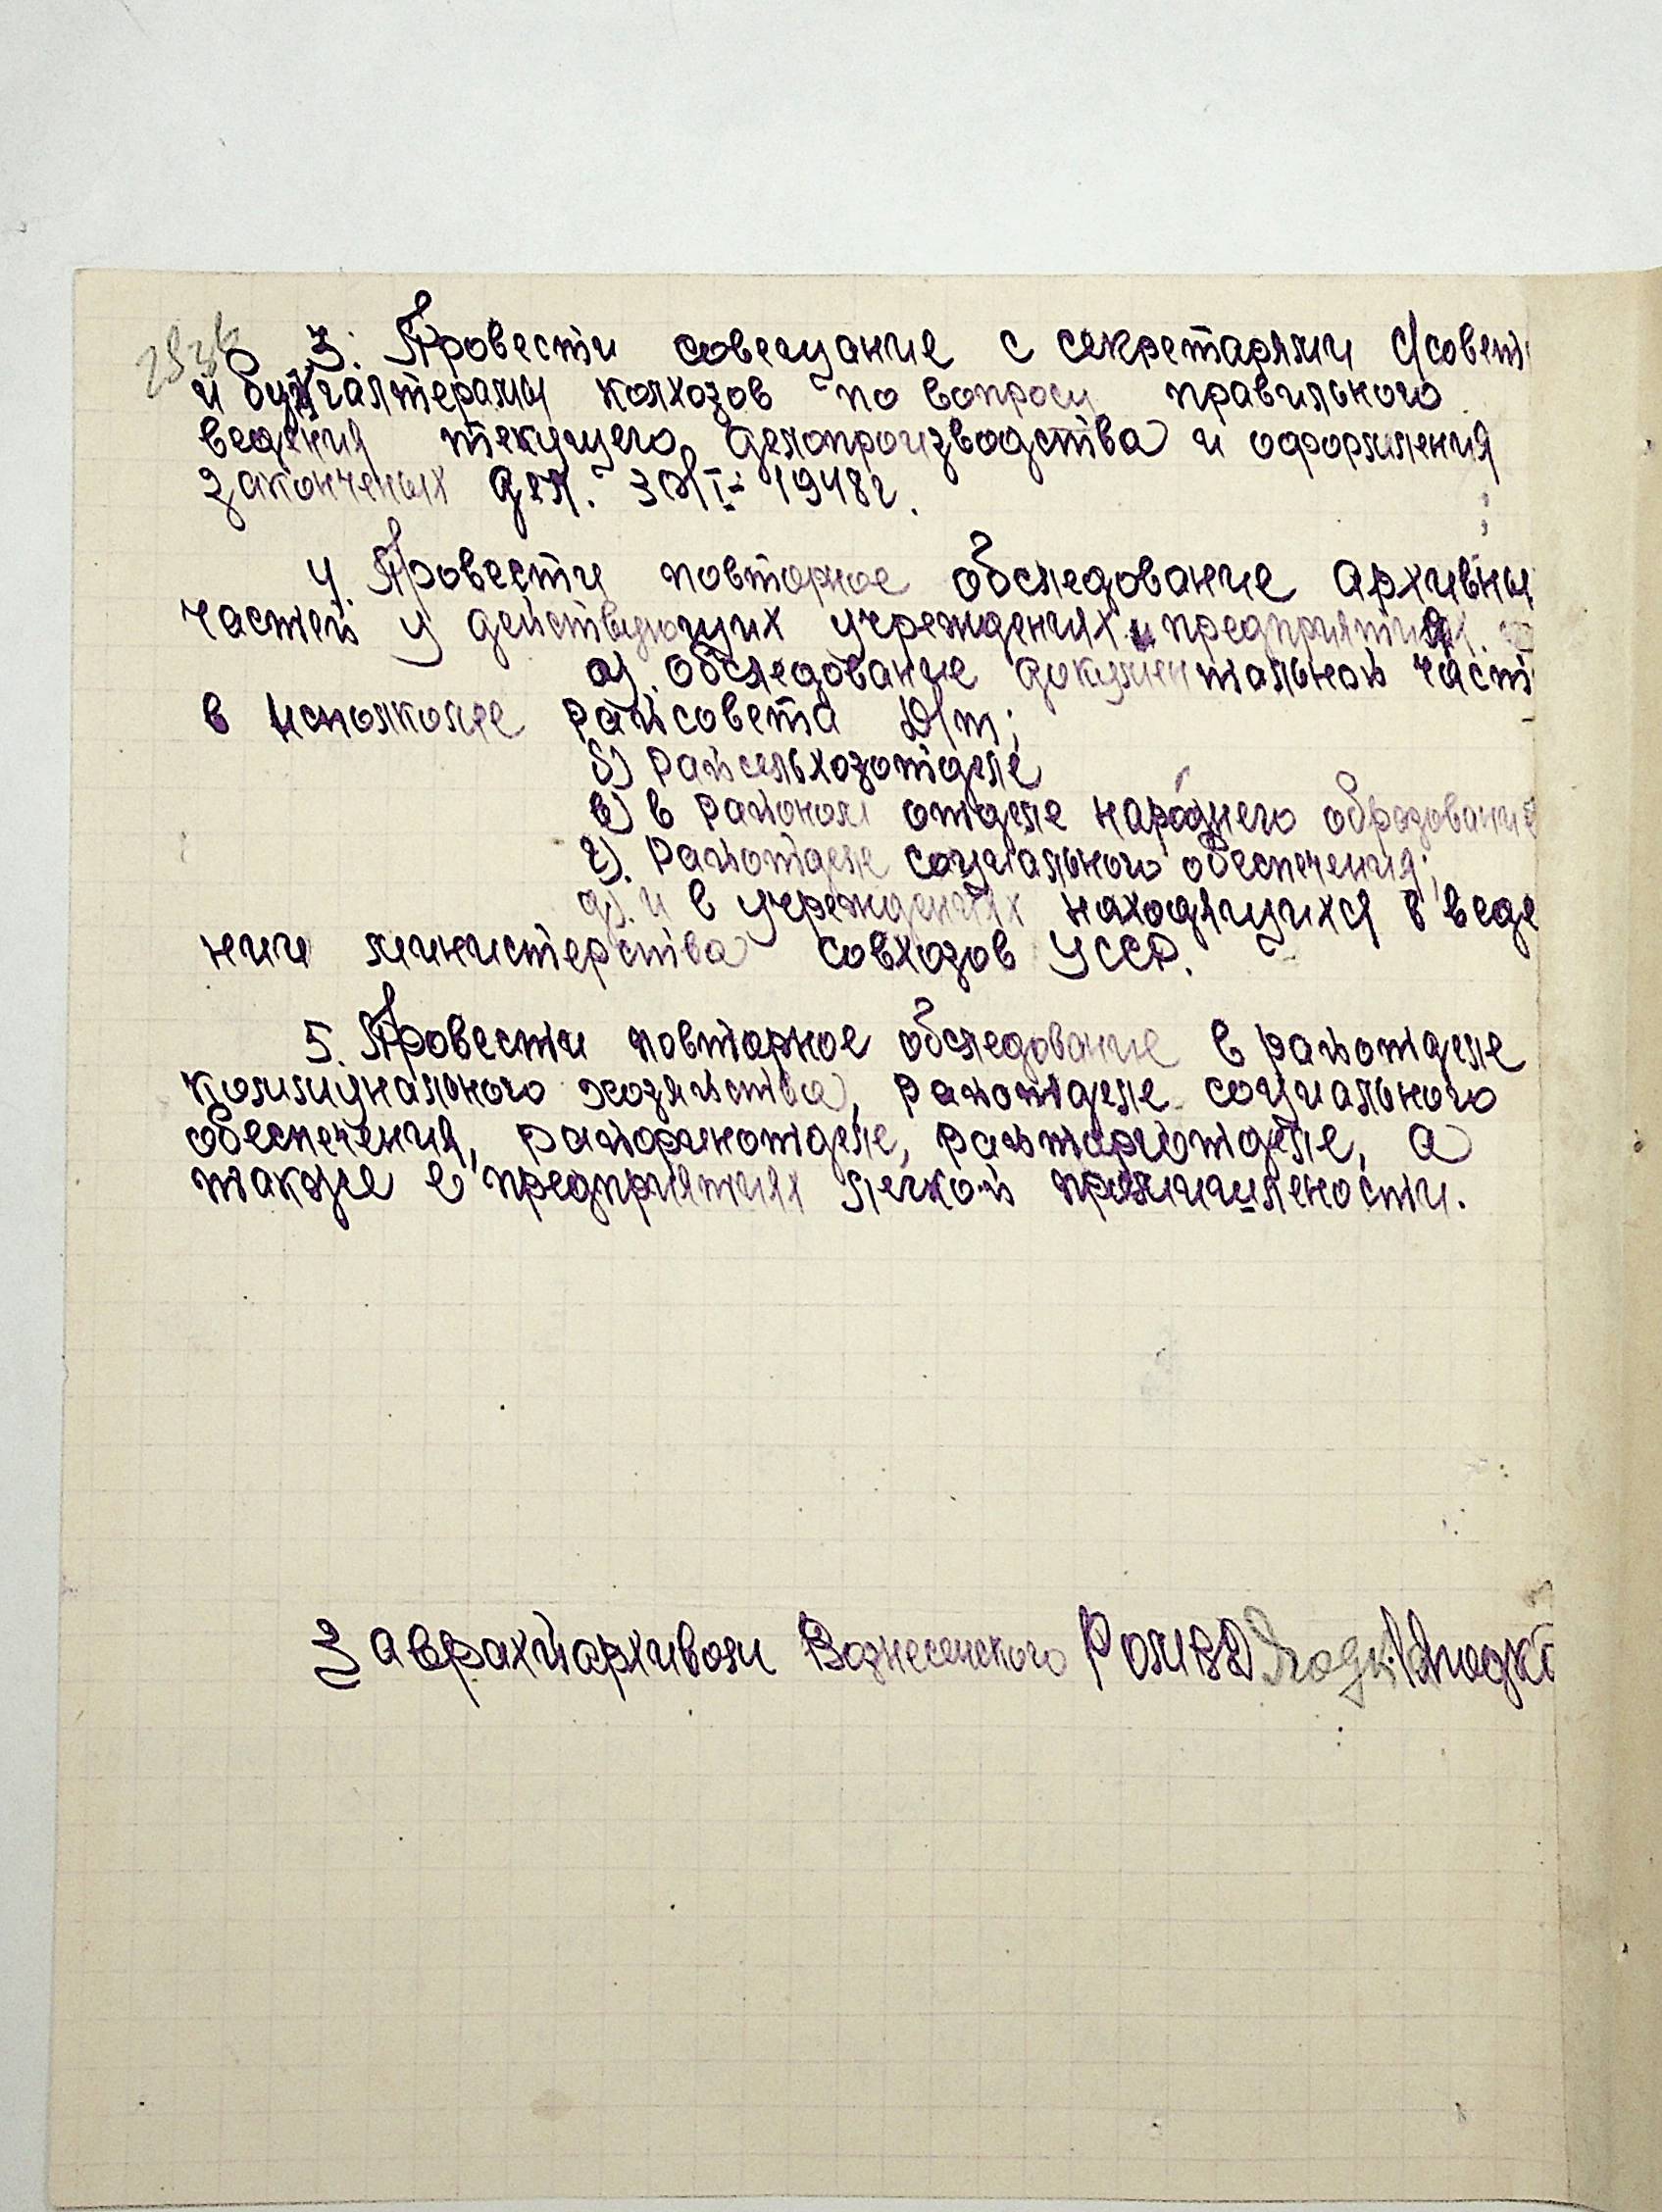 3. Провести совещание с секретарями с/совет
и бухгалтерами колхозов по вопросу правильного
ведения текущего делопроизводства и оформления
законченых дел. 30/I- 1948г.
4. Провести повторное обследование архивны
частей у действующих учреждениях и предприятиях.
а). Обследование документальной част
в исполкоме райсовета д/т;
б) райсельхозотделе
в) в районом отделе народнего образование
г). райотделе социального обеспечения;
д). и в учреждениях находящихся в веде
нии министерства совхозов УССР.
5. Провести повторное обследование в райотделе
коммунального хозяйства, райотделе социального
обеспечения, райфинотделе, райторготделе, а
также в предприятиях легкой промишлености.
Заврайгосархивом Вознесенского РОМВД